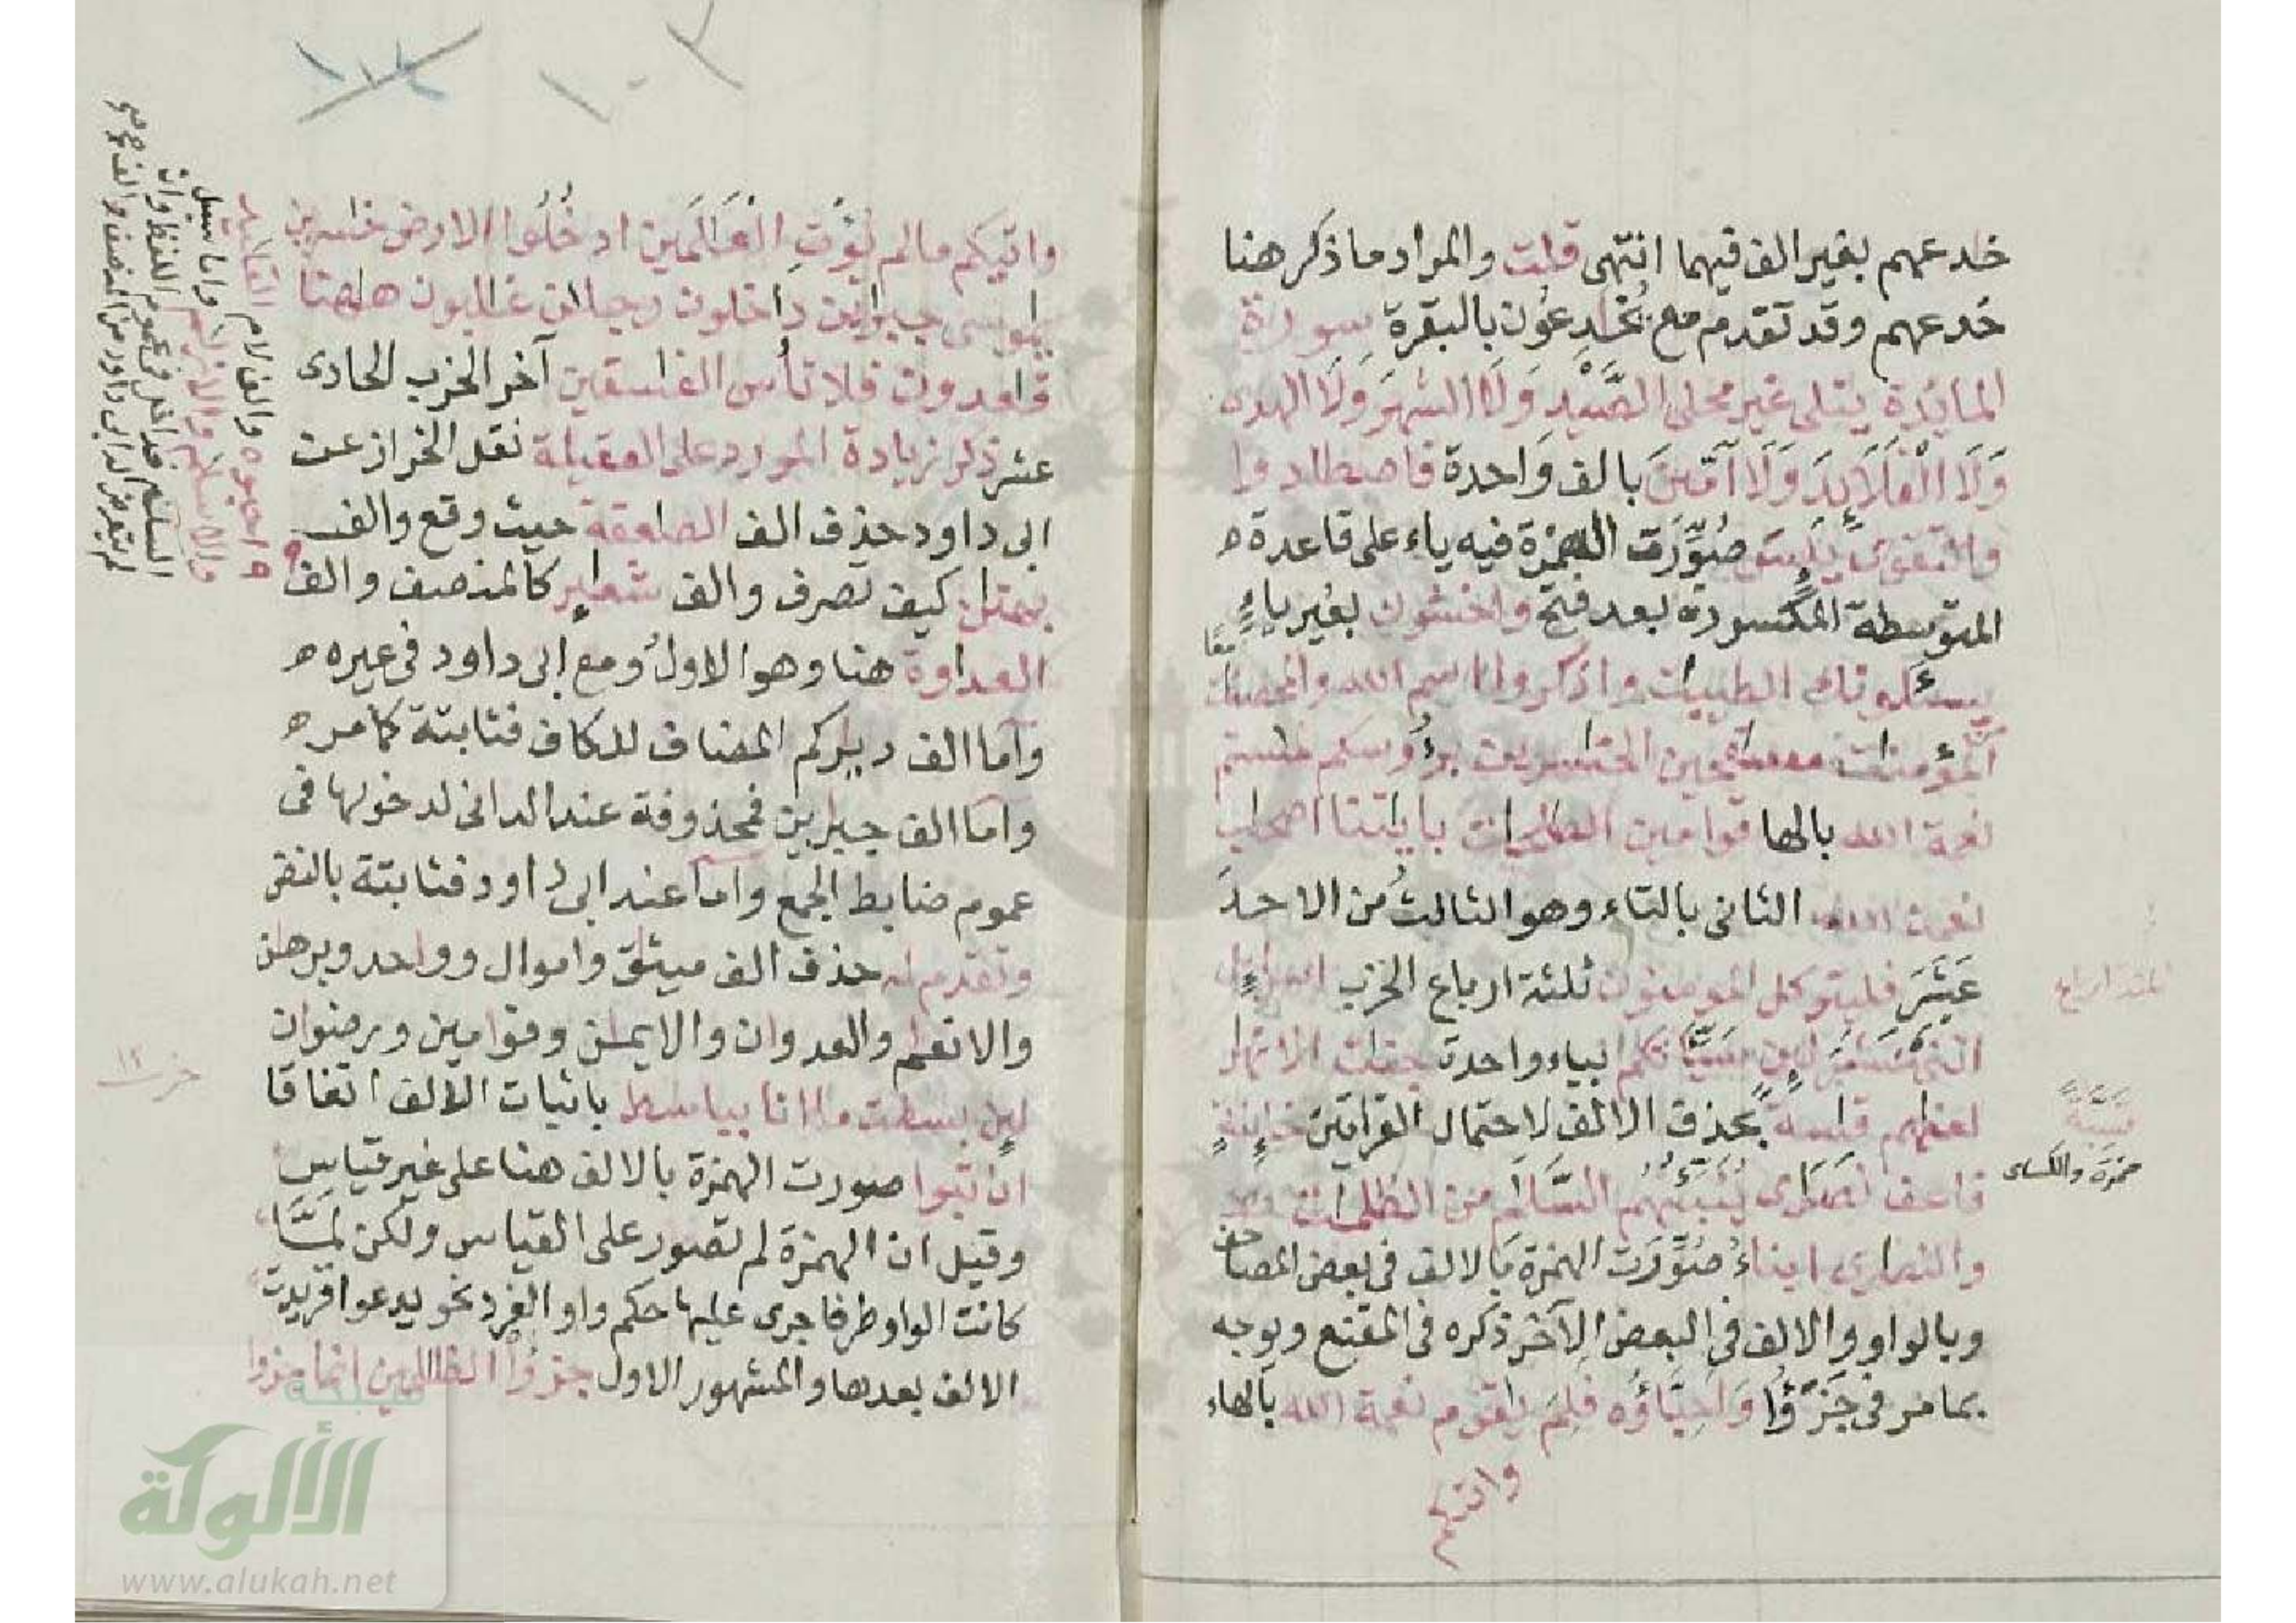 خدعهم بغير الف فيهما انتهى قلت والمراد ما ذكر هنا
خدعهم وقد تقدم مع يخدعون بالبقرة سورة
المائدة يتلى غير محلى الصيد ولا الشهر ولا الهدى
ولا القلايد ولا آمين بالف واحدة فاصطادوا
والتقوى يئس صورت الهمزة فيه ياء على قاعدة
المتوسطة المكسورة بعد فتح واخشون بغير ياء
يسئلونك الطيبات واذكروا اسم الله والمحصنات
المؤمنات مسافحين الخاسرين برؤوسكم لمستم
نعمة الله بالها قوامين الصالحات باياتنا اصحاب
نعمت الله الثانى بالتاء وهو الثالث من الاحد
عشر فليتوكل المؤمنون ثلثة ارباع الحزب اسراءيل
اثنى عشر لين سيّاتكم بياء واحدة جنات الانهار
لعناهم قاسية بحذف الالف لاحتمال القراءتين خاينة
فاعف نصارى ينبئهم السلام من الظلمات
والنصارى ابناء صورت الهمزة بالالف فى بعض المصاحف
وبالواو والالف فى البعض الآخر ذكره فى المقنع ويوجه
بما مر فى جزؤا واحباؤه فلم ياقوم نعمة الله بالهاء
واتيكم
ثلثة ارباع
قسية
حمزة والكساى
واتيكم مالم يؤت العالمين ادخلوا الارض خاسرين
ياموسى جبارين داخلون رجلان غالبون هاهنا
قاعدون فلا تأس الفاسقين آخر الحزب الحادى
عشر ذكر زيادة المورد على العقيلة نقل الخراز عن
ابى داود حذف الف الصاعقة حيث وقع والف
بهتان كيف تصرف والف شعاير كالمنصف والف
العداوة هنا وهو الاول ومع ابى داود فى غيره
واما الف دياركم المضاف للكاف فثابتة كما مر
واما الف جبارين فمحذوفة عند الدانى لدخولها فى
عموم ضابط الجمع واما عند ابى داود فثابتة بالنص
وتقدم له حذف الف ميثاق واموال وواحد وبرهان
والانعام والعدوان والايمان وقوامين ورضوان
لين بسطت ما انا بباسط باثبات الالف اتفاقا
ان تبوا صورت الهمزة بالالف هنا على غير قياس
وقيل ان الهمزة لم تصور على القياس ولكن لما
كانت الواو طرفا جرى عليها حكم واو الفرد نحو يدعوا فزيدت
الالف بعدها والمشهور الاول جزؤا الظالمين انما جزؤا
حزب ١٢
شبكة
الألوكة
www.alukah.net